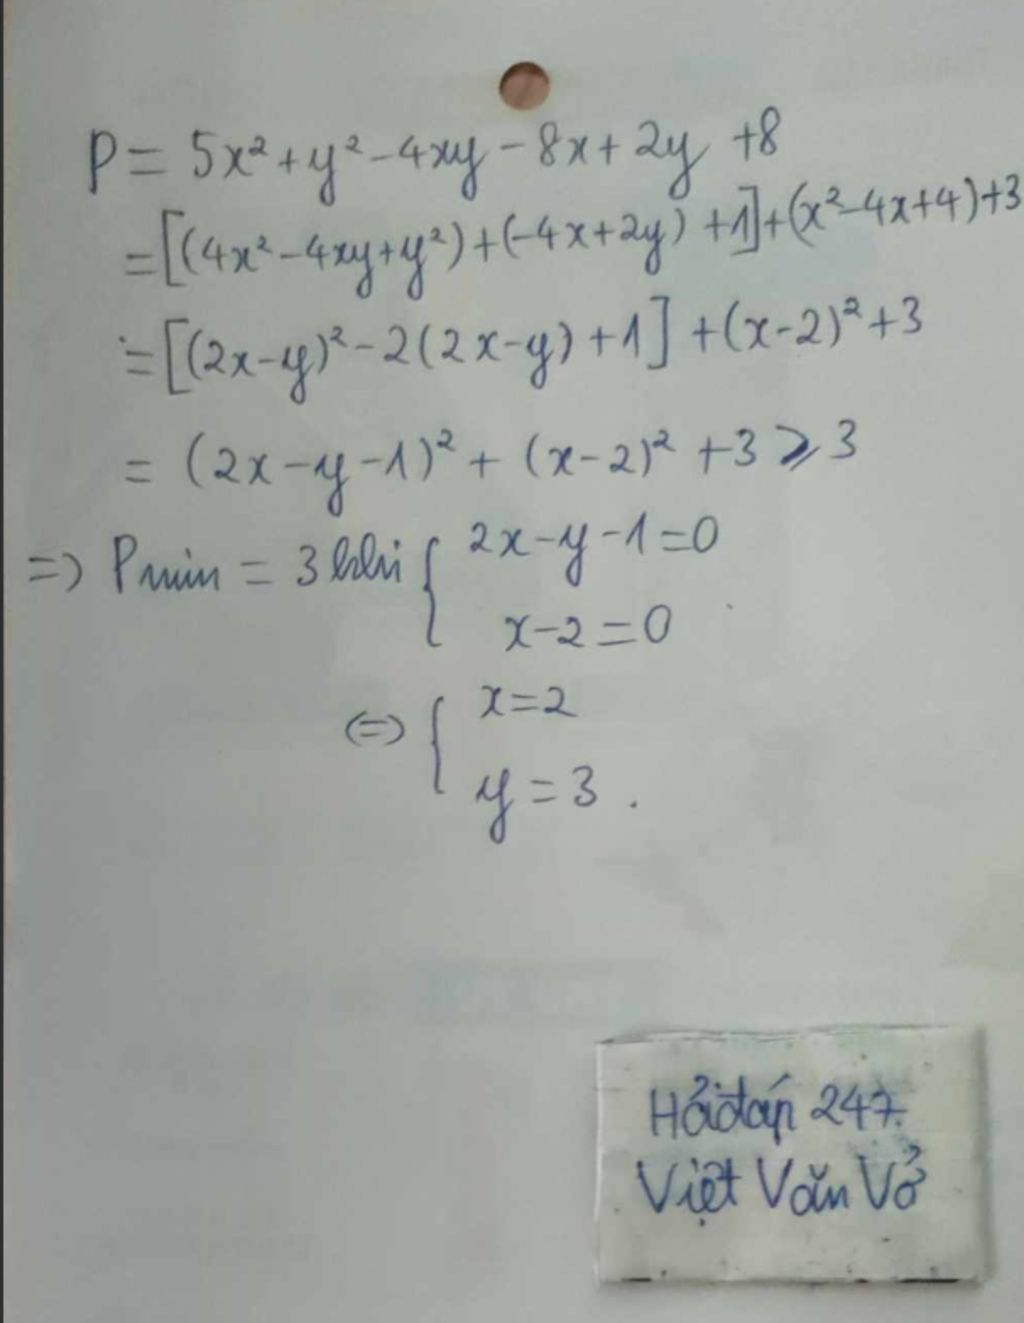 P = 5x² + y² - 4xy - 8x + 2y + 8
= [(4x² - 4xy + y²) + (-4x + 2y) + 1] + (x² - 4x + 4) + 3
= [(2x - y)² - 2(2x - y) + 1] + (x - 2)² + 3
= (2x - y - 1)² + (x - 2)² + 3 ⩾ 3
=> Pmin = 3 khi { 2x - y - 1 = 0
x - 2 = 0
<=> { x = 2
y = 3 .
Hỏiđáp 247.
Việt Văn Vở